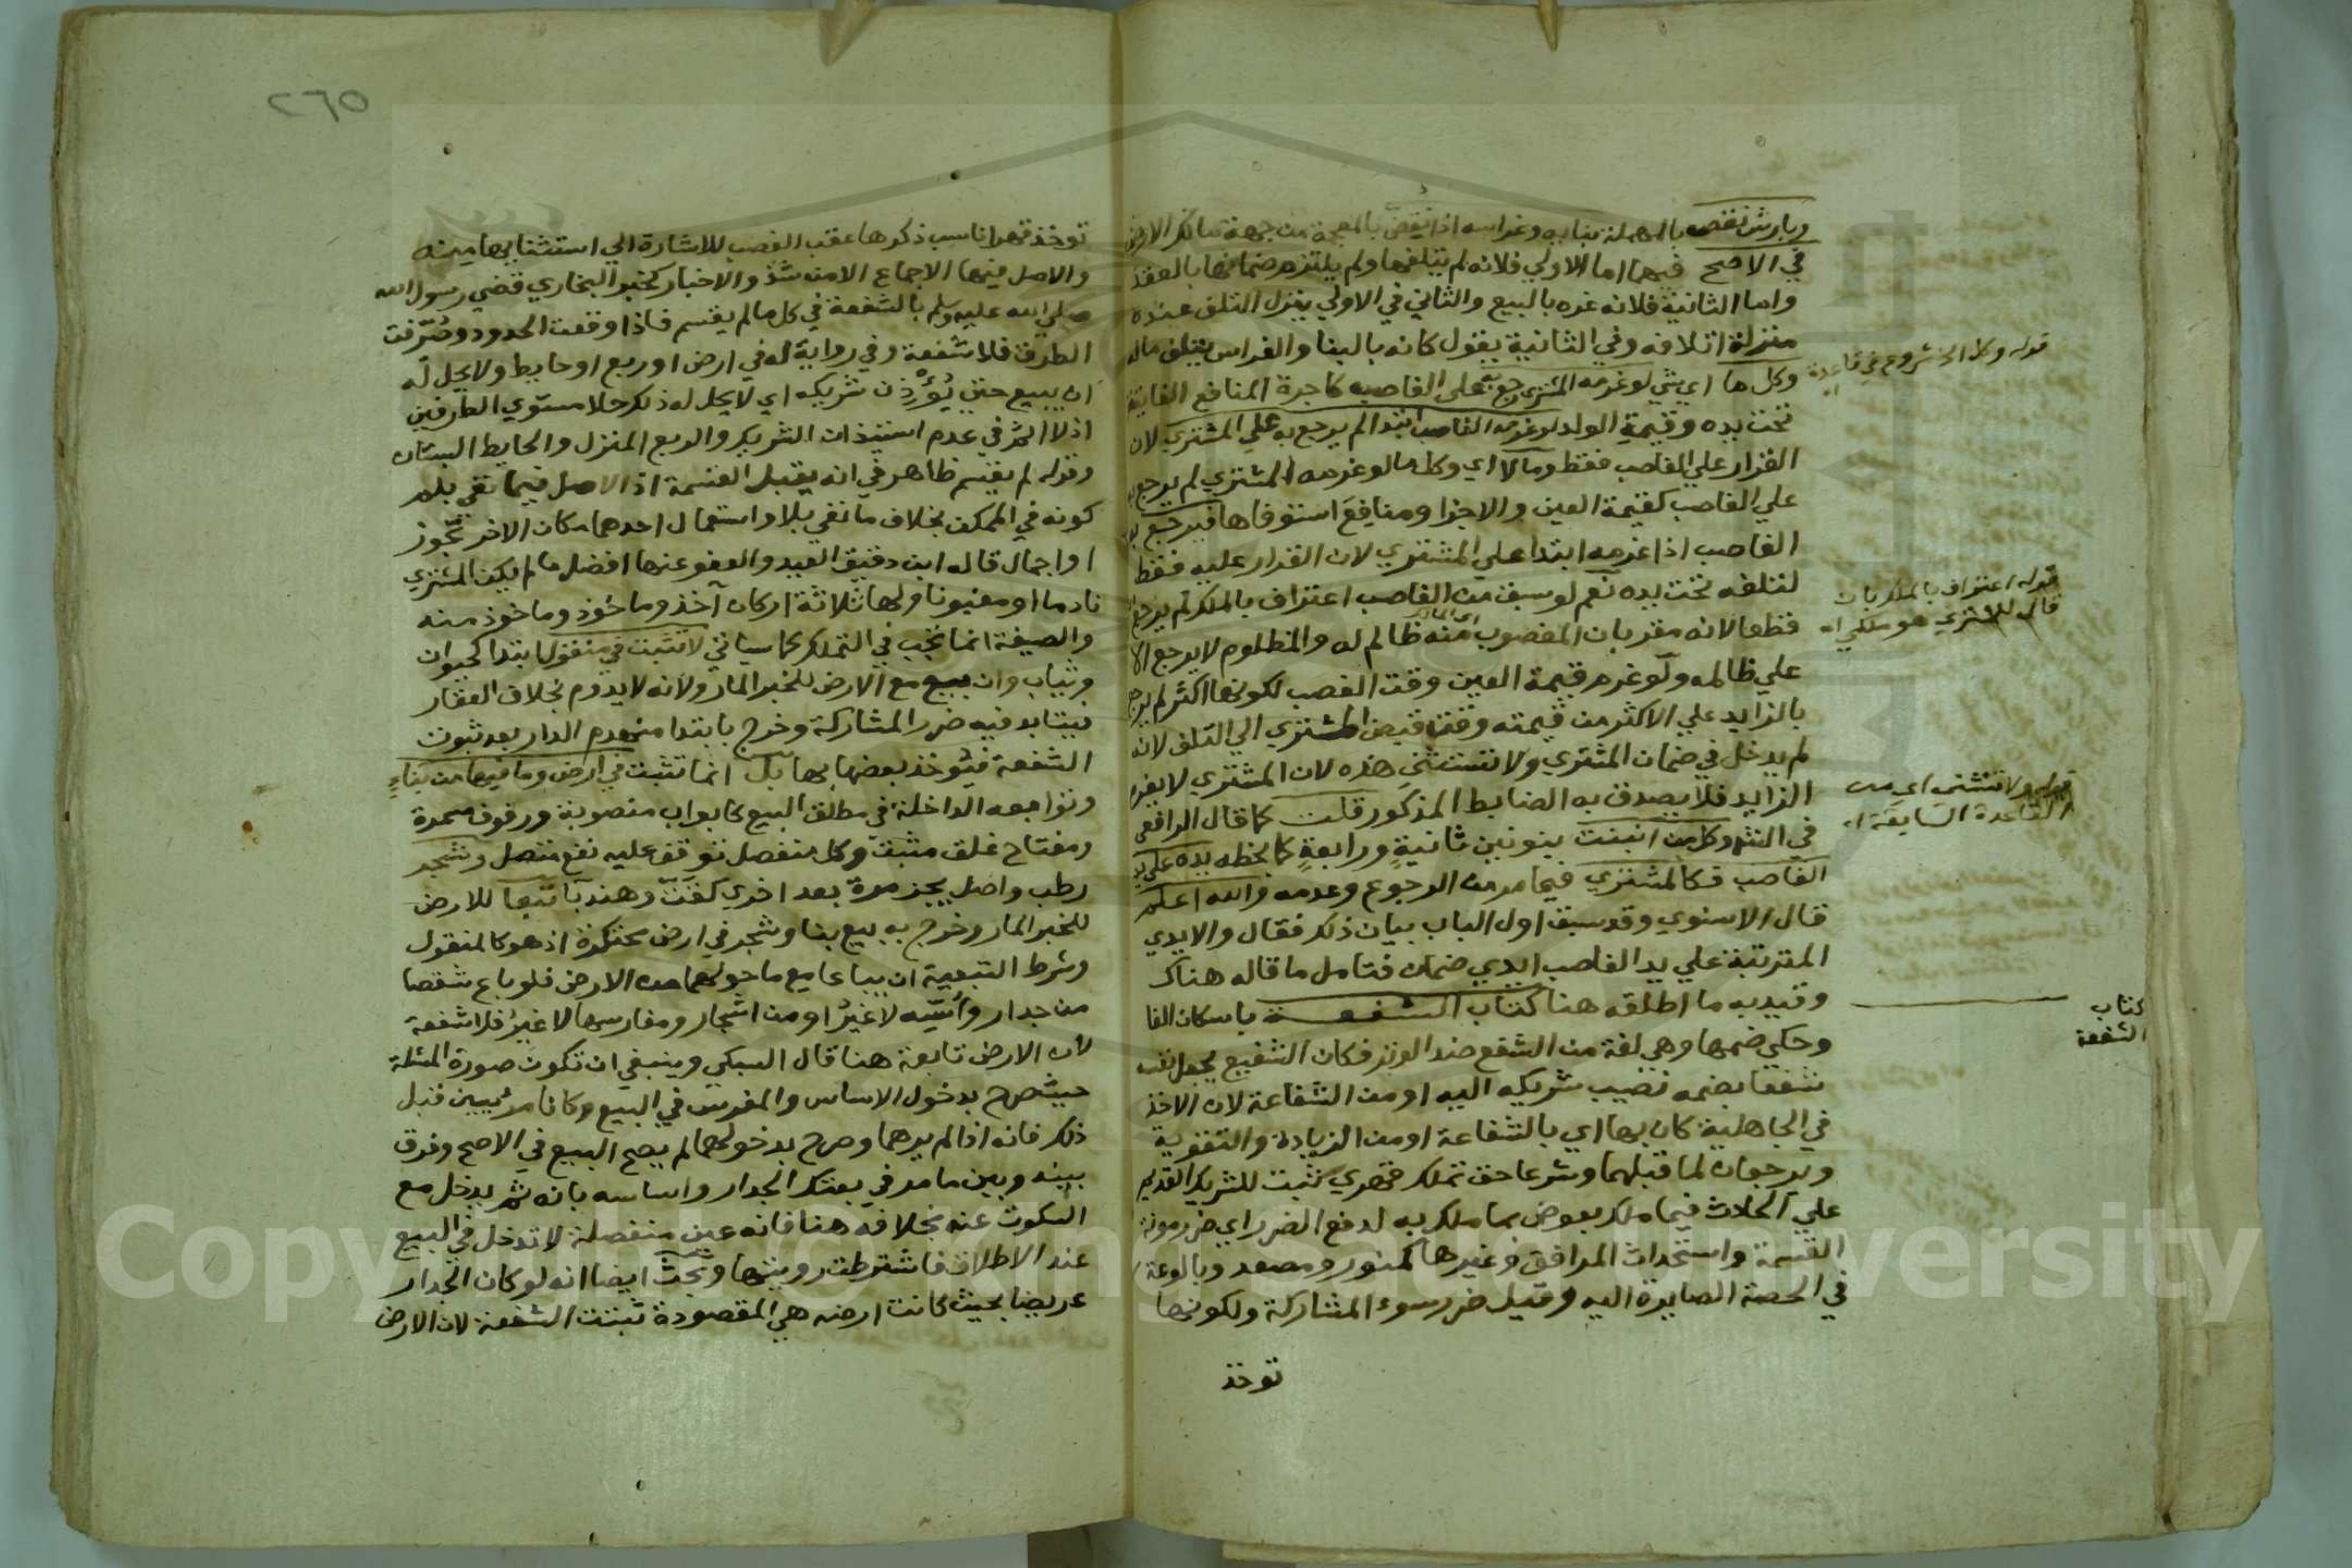 وبارش نقصه بالمهملة بنايه وغراسه اذا نقض بالمعجمة من جهة مالك الارض
في الاصح فيهما اما الاولي فلانه لم يتلفها ولم يلتزم ضمانها بالعقد
واما الثانية فلانه غره بالبيع والثاني في الاولي ينزل التلف عنده
منزلة اتلافه وفي الثانية يقول كانه بالبنا والغراس يتلف ماله
وكل ما اي شي لو غرمه المشتري رجع به علي الغاصب كاجرة المنافع الفايتة
تحت يده وقيمة الولد لو غرمه الغاصب ابتدا لم يرجع به علي المشتري لان
القرار علي الغاصب فقط وما لا اي وكل ما لو غرمه المشتري لم يرجع به
علي الغاصب كقيمة العين والاجزا ومنافع استوفاها فيرجع به
الغاصب اذا غرمه ابتدا علي المشتري لان القرار عليه فقط
لتلفه تحت يده نعم لو سبق من الغاصب اعتراف بالملك لم يرجع
قطعا لانه مقر بان المغصوب منه ظالم له والمظلوم لا يرجع الا
علي ظالمه ولو غرم قيمة العين وقت الغصب لكونها اكثر لم يرجع
بالزايد علي الاكثر من قيمته وقت قبض المشتري الي التلف لانه
لم يدخل في ضمان المشتري ولا تستثني هذه لان المشتري لا يغرم
الزايد فلا يصدق به الضابط المذكور قلت كما قال الرافعي
في الشرح وكل من انبنت بنونين ثانية ورابعة كما بخطه يده علي يد
الغاصب فكالمشتري فيما مر من الرجوع وعدمه والله اعلم
قال الاسنوي وقد سبق اول الباب بيان ذلك فقال والايدي
المترتبة علي يد الغاصب ايدي ضمان فتامل ما قاله هناك
وقيد به ما اطلقه هنا كتاب الشفعة باسكان الفا
وحكي ضمها وهي لغة من الشفع ضد الوتر فكان الشفيع يجعل نفسه
شفعا بضمه نصيب شريكه اليه او من الشفاعة لان الاخذ
في الجاهلية كان بها اي بالشفاعة او من الزيادة والتقوية
ويرجعان لما قبلهما وشرعا حق تملك قهري يثبت للشريك القديم
علي الحادث فيما ملك بعوض بما ملك به لدفع الضرر اي ضرر مونة
القسمة واستحداث المرافق وغيرها كمنور ومصعد وبالوعة
في الحصة الصايرة اليه وقيل ضرر سوء المشاركة ولكونها
توخذ
قوله وكل ما الخ شروع في قاعدة اه
قوله اعتراف بالملك بان
قال للمشتري هو ملكي اه
قوله ولا تستثني اي من
القاعدة السابقة اه
كتاب
الشفعة
٢٦٥
توخذ قهرا ناسب ذكرها عقب الغصب للاشارة الي استثنايها منه
والاصل فيها الاجماع الا من شذ والاخبار كخبر البخاري قضي رسول الله
صلي الله عليه وسلم بالشفعة في كل ما لم يقسم فاذا وقعت الحدود وصرفت
الطرق فلا شفعة وفي رواية له في ارض او ربع او حايط ولا يحل له
ان يبيع حتي يؤذن شريكه اي لا يحل له ذلك حلا مستوي الطرفين
اذ لا اثم في عدم استيذان الشريك والربع المنزل والحايط البستان
وقوله لم يقسم ظاهر في انه يقبل القسمة اذ الاصل فيما نفي بلم
كونه في الممكن بخلاف ما نفي بلا واستعمال احدهما مكان الاخر تجوز
او اجمال قاله ابن دقيق العيد والعفو عنها افضل ما لم يكن المشتري
نادما او مغبونا ولها ثلاثة اركان آخذ وماخوذ وماخوذ منه
والصيغة انما تجب في التملك كما سياتي لا تثبت في منقول ابتدا كحيوان
وثياب وان بيع مع الارض للخبر المار ولانه لا يدوم بخلاف العقار
يتابد فيه ضرر المشاركة وخرج بابتدا منهدم الدار بعد ثبوت
الشفعة فيؤخذ بعضها بها بل انما تثبت في ارض وما فيها من بناء
وتوابعه الداخلة في مطلق البيع كابواب منصوبة ورفوف مسمرة
ومفتاح غلق مثبت وكل منفصل توقف عليه نفع متصل وشجر
رطب واصل يجز مرة بعد اخري كقت وهندبا تبعا للارض
للخبر المار وخرج به بيع بنا وشجر في ارض محتكرة اذ هو كالمنقول
وشرط التبعية ان يباعا مع ما حولهما من الارض فلو باع شقصا
من جدار واسه لا غير او من اشجار ومغارسها لا غير فلا شفعة
لان الارض تابعة هنا قال السبكي وينبغي ان تكون صورة المسئلة
حيث صرح بدخول الاساس والمغرس في البيع وكانا مرئيين قبل
ذلك فانه اذا لم يرهما وصرح بدخولهما لم يصح البيع في الاصح وفرق
بينه وبين ما مر في بعتك الجدار واساسه بانه ثم يدخل مع
السكوت عنه بخلافه هنا فانه عين منفصلة لا تدخل في البيع
عند الاطلاق فاشترطت رويتها وبحث ايضا انه لو كان الجدار
عريضا بحيث كانت ارضه هي المقصودة ثبتت الشفعة لان الارض
Copyright © King Saud University